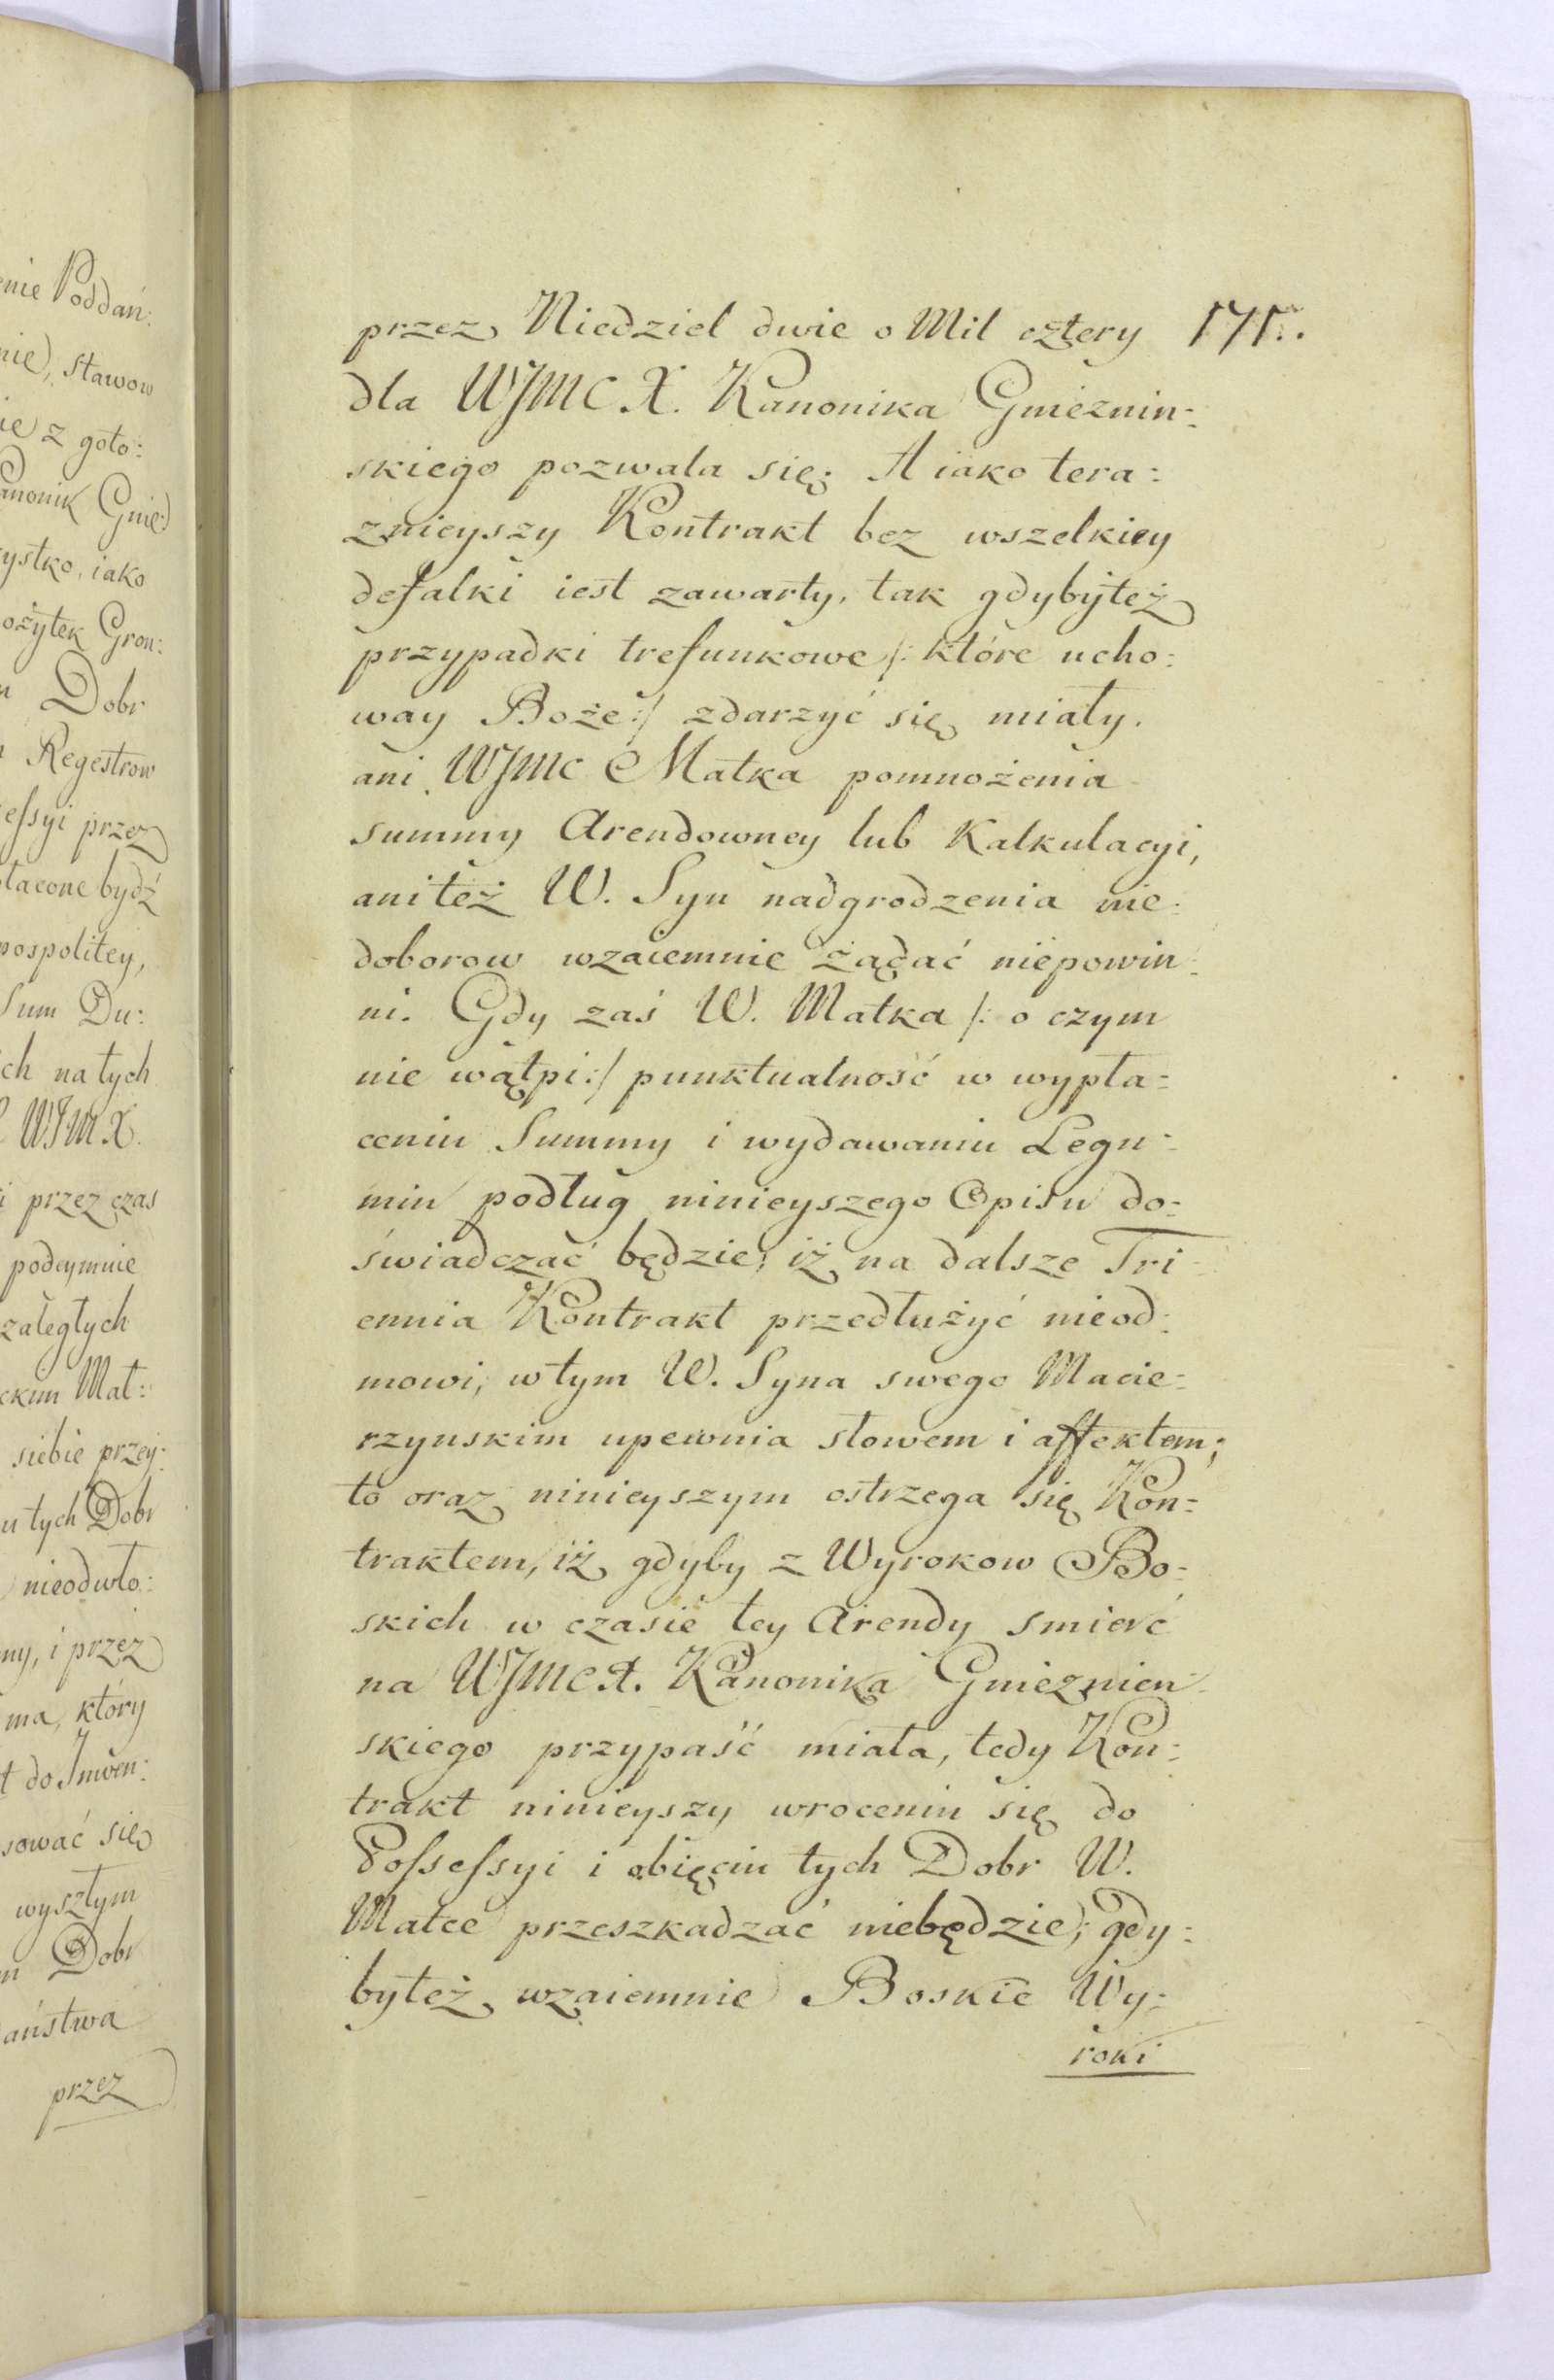 enie Poddań:
nie), stawow
ie z goto:
anonik Gnie:
ystko, iako
ożytek Gron:
Dobr
Regestrow
eſsyi przez
łacone bydź
pospolitey,
Sum Du:
ch na tych
WJM X.
i przez czas
podeymnie
załegłych
ckim Mat:
siebie przey:
u tych Dobr
nieodwło:
my, i przez
ma, który
t do Inwen:
sować się
wyszłym
m Dobr
aństwa
przez
przez Niedziel dwie o Mil cztery 171.
dla WJMC X. Kanonika Gnieznin:
skiego pozwala się. A iako tera:
znieyszy Kontrakt bez wszelkiey
defalki iest zawarty, tak gdybyteż
przypadki trefunkowe /: które ucho:
way Boże :/ zdarzyć się miały.
ani WJMC Matka pomnożenia
summy Arendowney lub Kalkulacyi,
ani też W. Syn nadgrodzenia nie:
doborow wzaiemnie żądać niepowin:
ni. Gdy zaś W. Matka /: o czym
nie wątpi :/ punktualność w wypła:
ceniu Summy i wydawaniu Legu:
min podług ninieyszego Opisu do:
świadczać będzie, iż na dalsze Tri:
ennia Kontrakt przedłużyć nieod:
mowi, w tym W. Syna swego Macie:
rzynskim upewnia słowem i affektem;
to oraz ninieyszym ostrzega się Kon:
traktem, iż gdyby z Wyrokow Bo:
skich w czasie tey Arendy smierć
na WJMC X. Kanonika Gnieznien:
skiego przypaść miała, tedy Kon:
trakt ninieyszy wroceniu się do
Poſseſsyi i obięciu tych Dobr W.
Matce przeszkadzać niebędzie; gdy:
byteż wzaiemnie Boskie Wy:
roki